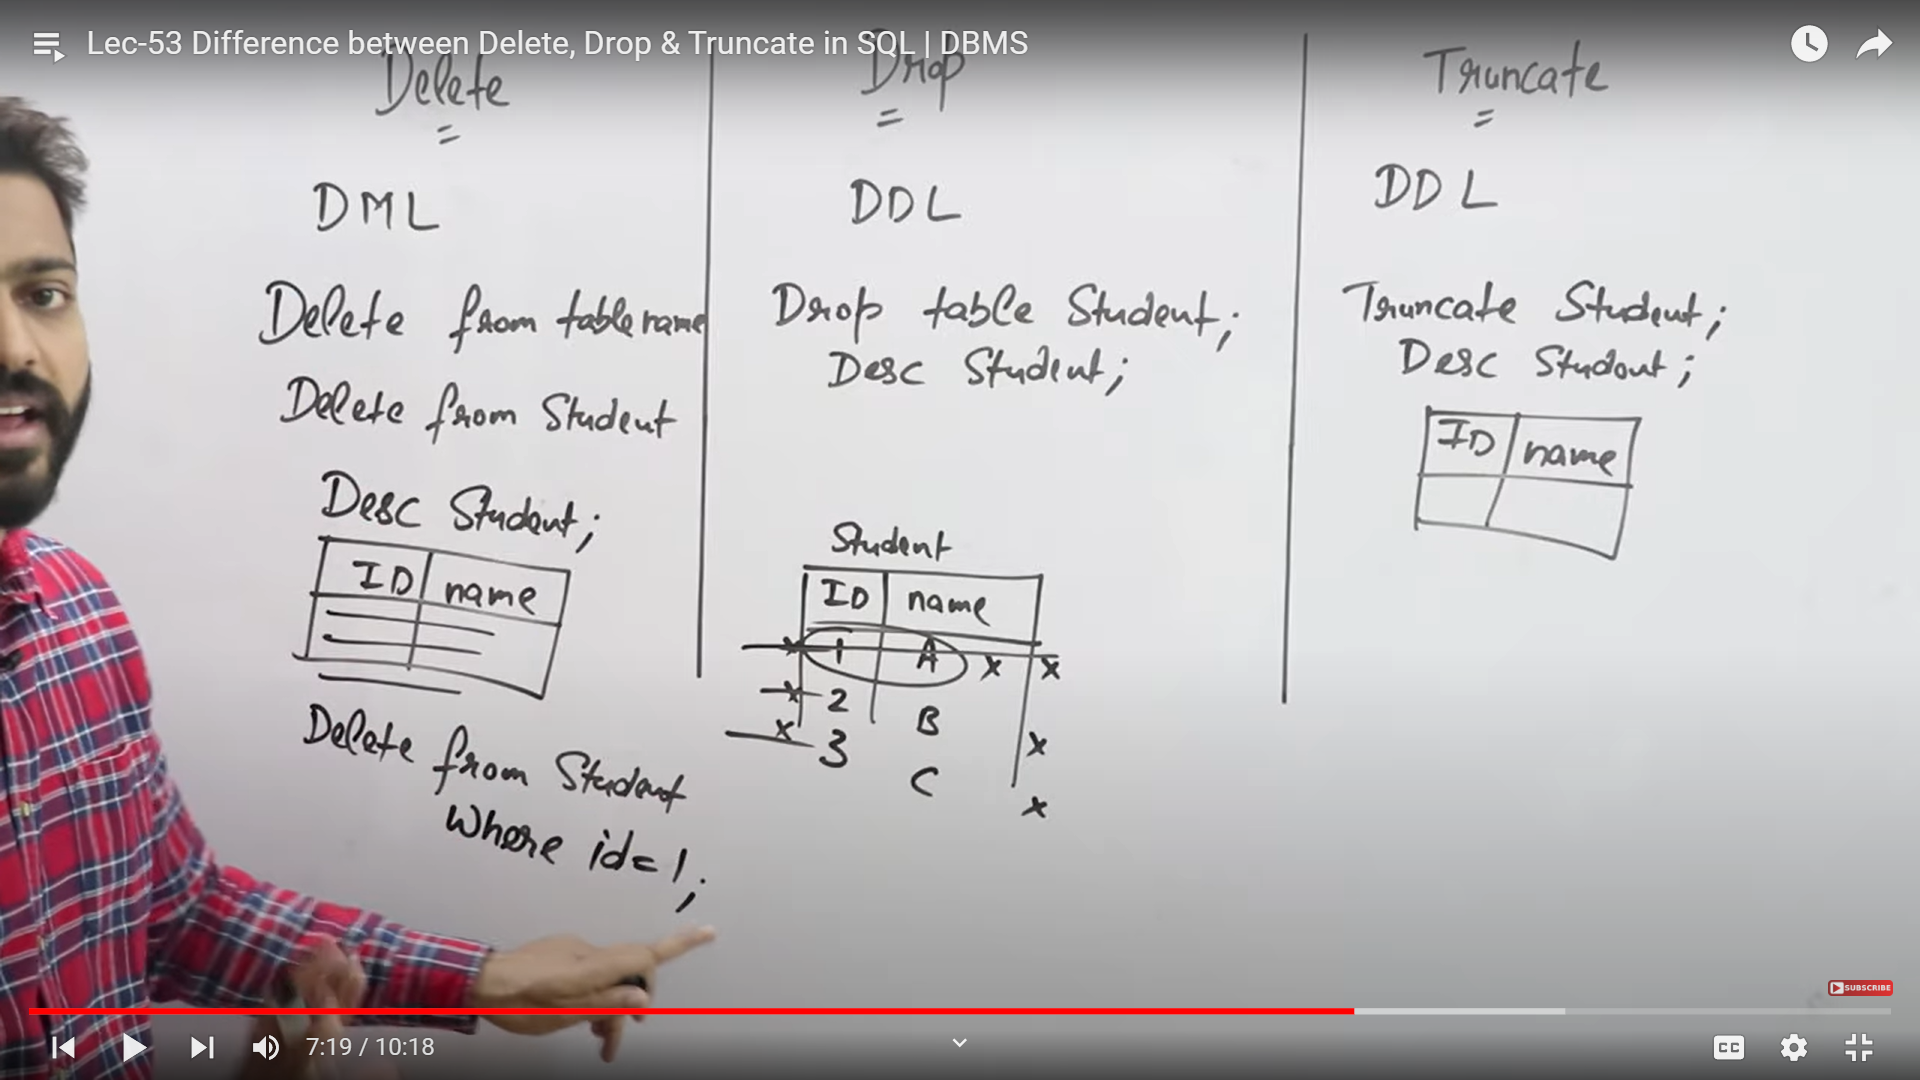 Lec-53 Difference between Delete, Drop & Truncate in SQL | DBMS
Delete
=
DML
Delete from tablename
Delete from Student
Desc Student;
ID name
Delete from Student
Where id=1;
Drop
=
DDL
Drop table Student;
Desc Student;
Student
ID name
1 A x x
x 2 B x
x 3 C x
Truncate
=
DDL
Truncate Student;
Desc Student;
ID name
SUBSCRIBE
7:19 / 10:18
CC